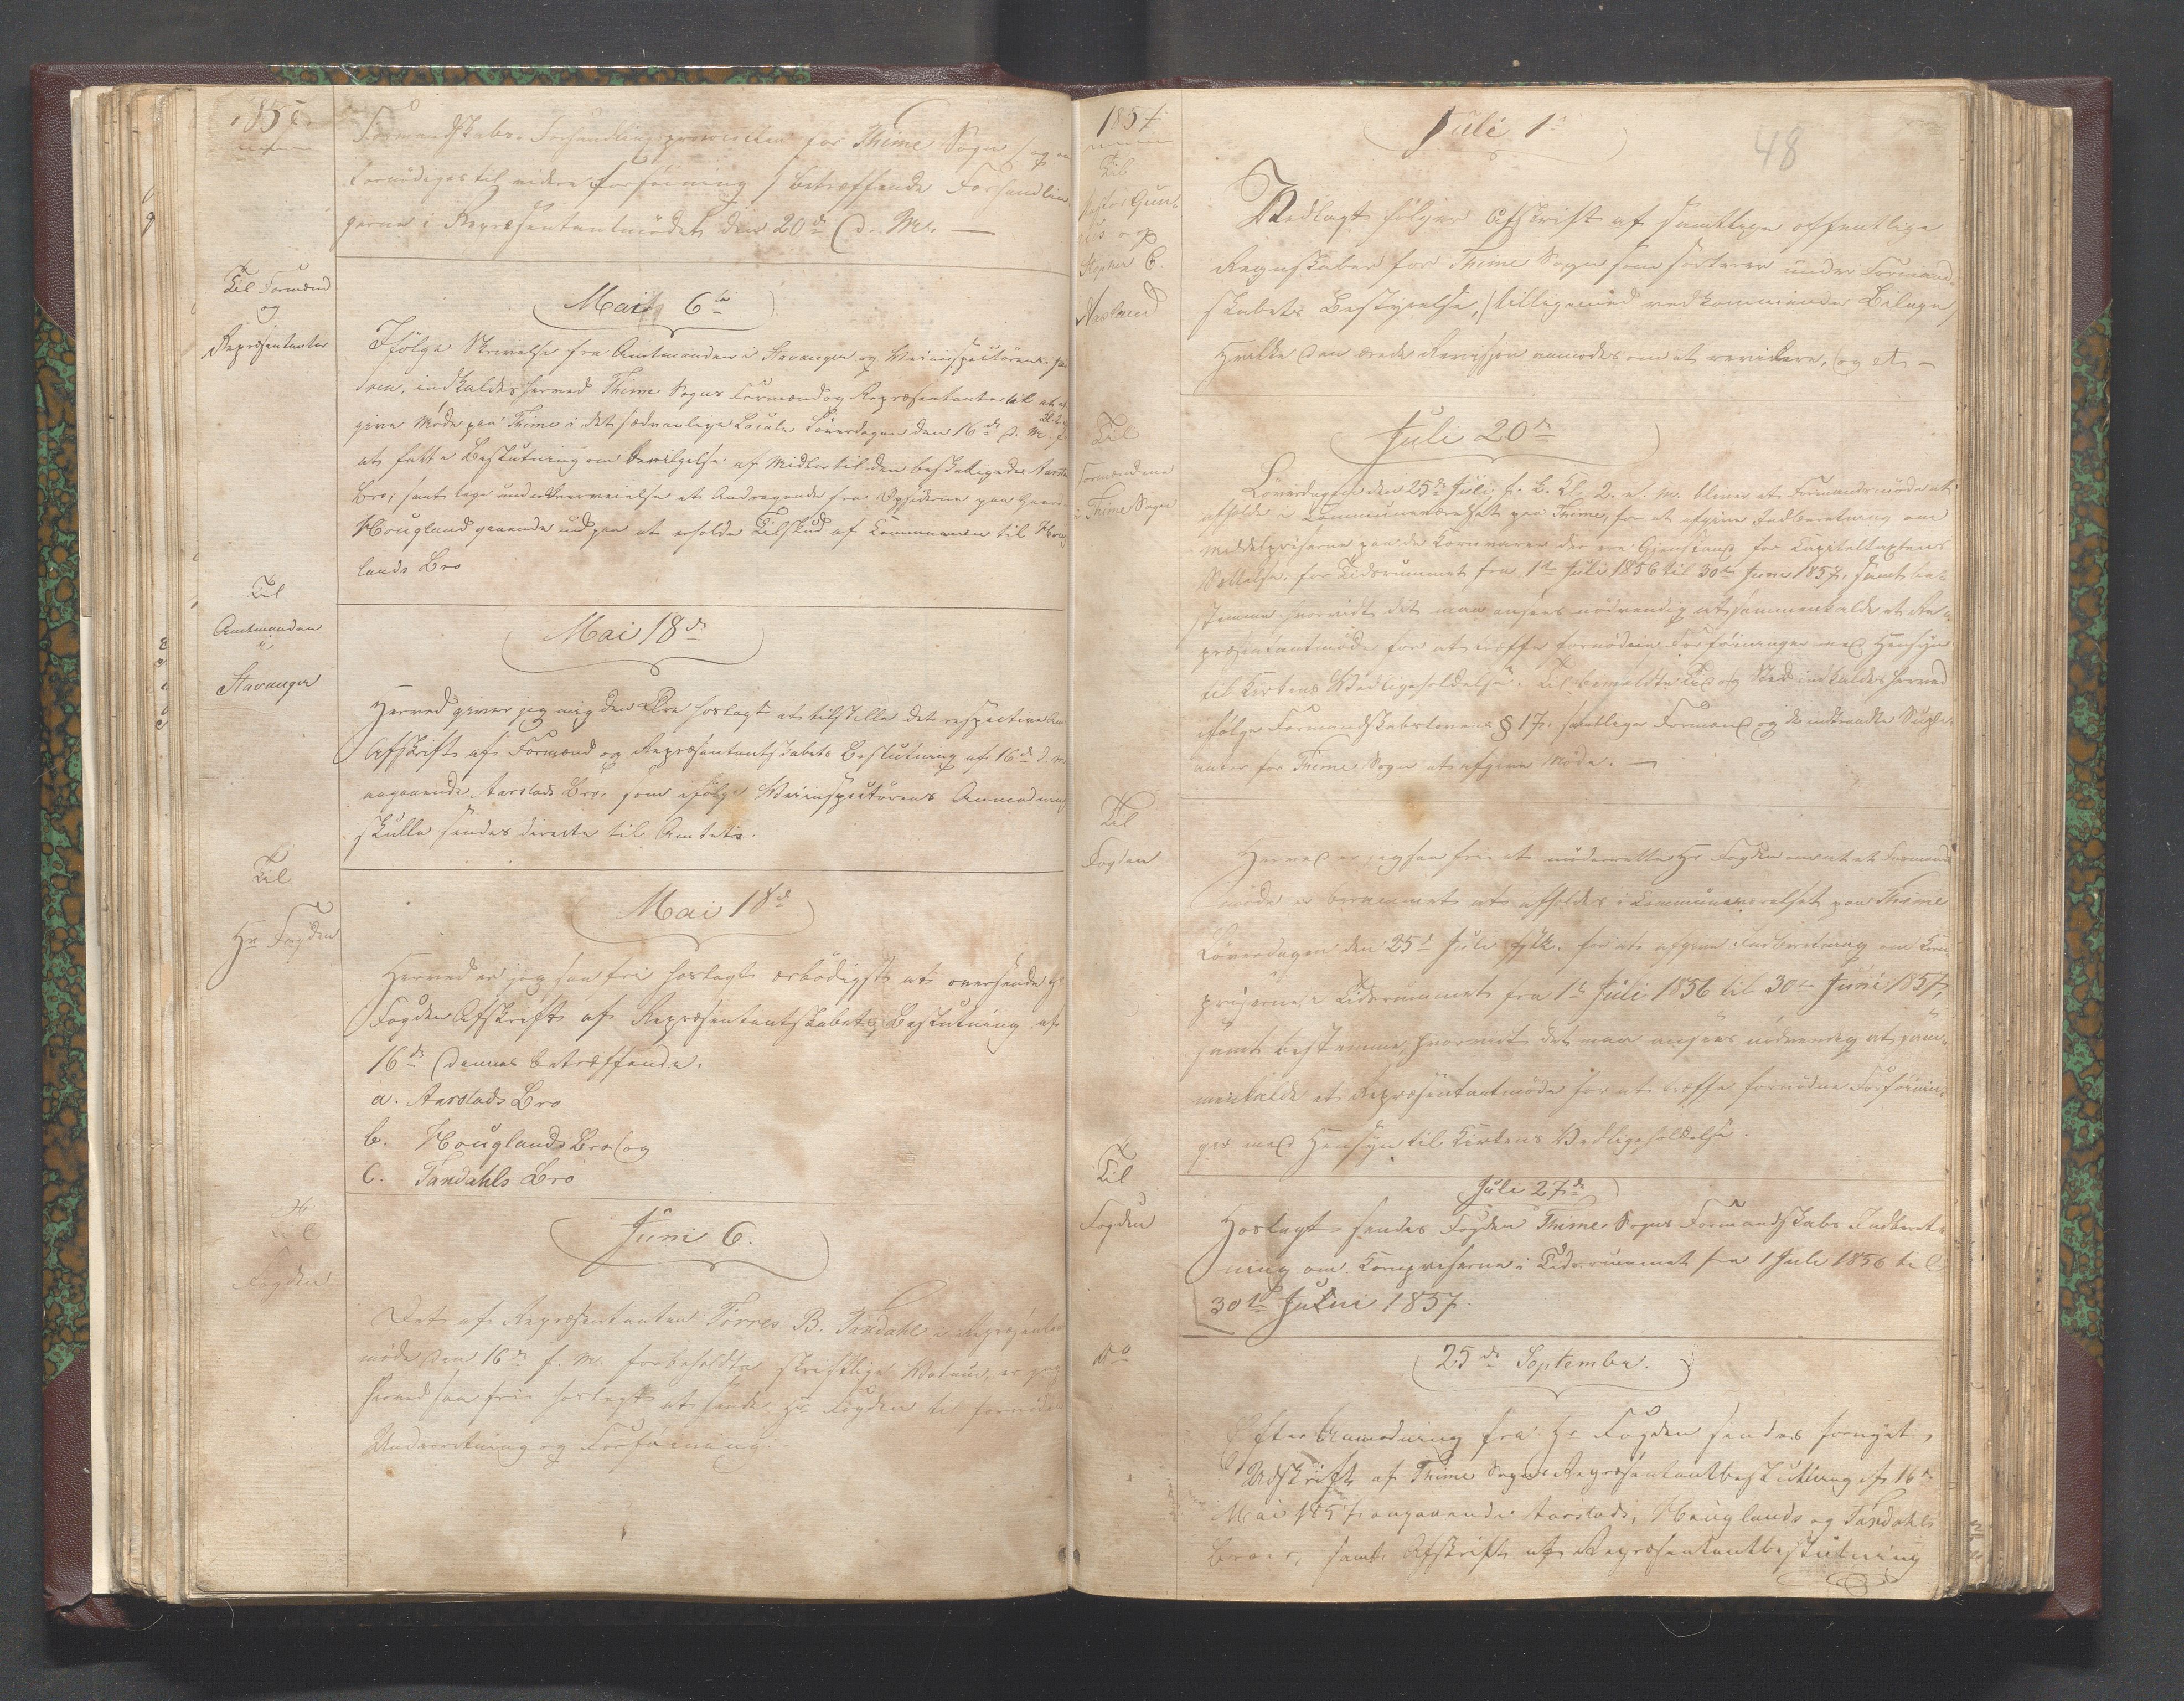 1857
Formandskabs Forhandlingsprotocollen for Thime Sogn
fornödiges til videre Forföining / betræffende Forhandlin
gerne i Repræsentantmödet den 20de d. M. —
Til Formænd
og
Repræsentanter
Mai 6te
Ifölge Skrivelse fra Amtmanden i Stavanger og Veiinspectören
indkaldes herved Thime Sogns Formænd og Repræsentanter til at
give Möde paa Thime i det sædvanlige Locale Löverdagen den 16de d. M.
at fatte Beslutning om Bevilgelse af Midler til den
Bro; samt tage under Overveielse et Andragende fra Opsidderne paa Gaard
Hougland gaaende ud paa at erholde Tilskud af Communen til Houg
lands Bro
Til
Amtmanden
i
Stavanger
Mai 18de
Herved giver jeg mig den Ære hoslagt at tilstille det respective
Afskrift af Formænd og Repræsentantskabets Beslutning af 16de d. M
angaaende Aarstads Bro, som ifölge Veiinspectörens Anmodning
skulle sendes directe til Amtet.
Til
Hr Fogden
Mai 18de
Herved er jeg saa fri hoslagt ærbödigst at oversende Hr
Fogden Afskrift af Repræsentantskabets Beslutning af
16de dennes betræffende.
a. Aarstads Bro
b. Houglands Bro og
c. Tandahls Bro
Til
Fogden
Juni 6.
Det af Repræsentanten Törres B. Tandahl i Repræsentant
möde den 16de f. M. forbeholdte skriftlige Votum, er jeg
herved saa fri hoslagt at sende Hr Fogden til fornöden
Underretning og Forföining.
1857
48
Til
og
Navland
Juli 1ste
Vedlagt fölger Afskrift af samtlige offentlige
Regnskaber for Thime Sogn som sorterer under Formand
skabets Bestyrelse, / tilligemed vedkommende Bilage /
hvilke den ærede Revisjon anmodes om at revidere, og et —
Til
Formændene
i Thime Sogn
Juli 20de
Löverdagen den 25de Juli f. K. Kl. 2. e. M. bliver et Formandsmöde at
afholde i Communeværelset paa Thime, for at afgive Indberetning om
Middelpriserne paa de Kornvarer der ere Gjenstand for Capiteltaxtens
Sættelse for Tidsrummet fra 1ste Juli 1856 til 30te Juni 1857, samt be-
stemme, hvorvidt det maa ansees nödvendig at sammenkalde et Re-
præsentantmöde for at træffe fornödne Forföininger med Hensyn
til Kirkens Vedligeholdelse. Til bemeldte Tid og Sted indkaldes herved
ifölge Formandskabslovens § 17. samtlige Formænd og de indvalgte Suple-
anter for Thime Sogn at afgive Möde. —
Til
Fogden
Herved er jeg saa fri at underrette Hr Fogden om at et Formands
möde er berammet at afholdes i Communeværelset paa Thime
Löverdagen den 25de Juli for at afgive Indberetning om Korn
priserne i Tidsrummet fra 1ste Juli 1856 til 30te Juni 1857,
samt bestemme, hvorvidt det maa ansees nödvendig at sam-
menkalde et Repræsentantmöde for at træffe fornödne Forföinin-
ger med Hensyn til Kirkens Vedligeholdelse.
Til
Fogden
Juli 27de
Hoslagt sendes Fogden Thime Sogns Formandskabs Indberet-
ning om Kornpriserne i Tidsrummet fra 1 Juli 1856 til
30te Juni 1857.
Do
25de September.
Efter Anmodning fra Hr Fogden sendes fornyet
Udskrift af Thime Sogns Repræsentantbeslutning af 16de
Mai 1857 angaaende Aarstads, Houglands og Tandahls
Broer, samt Afskrift af Repræsentantbeslutning